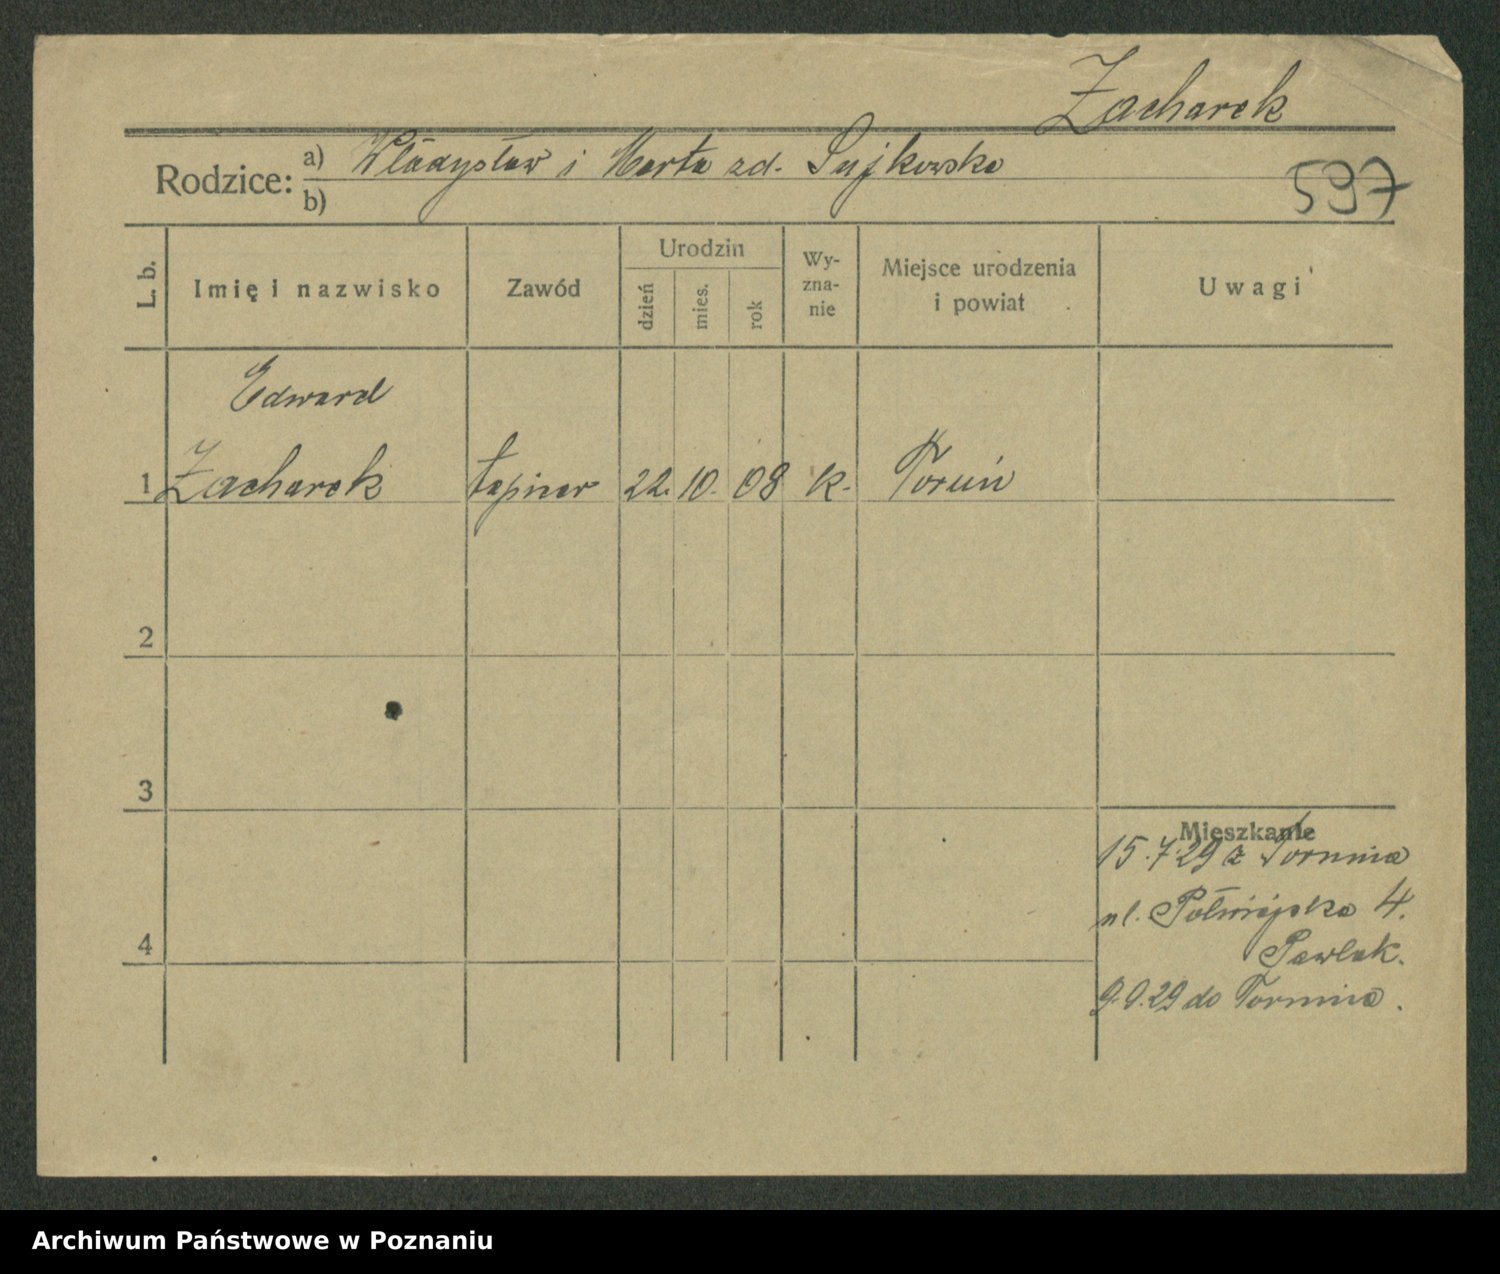 Zacharek
Rodzice: a) Władysław i Marta zd. Sujkowska
b)
597
L. b.
Imię i nazwisko
Zawód
Urodzin
dzień
mies.
rok
Wy-
zna-
nie
Miejsce urodzenia
i powiat
Uwagi
Edward
1 Zacharek tapicer 22. 10. 08 k. Toruń
2
3
4
Mieszkanie
15.7.29 z Torunia
ul. Półwiejska 4.
Pawlak.
9.9.29 do Torunia.
Archiwum Państwowe w Poznaniu